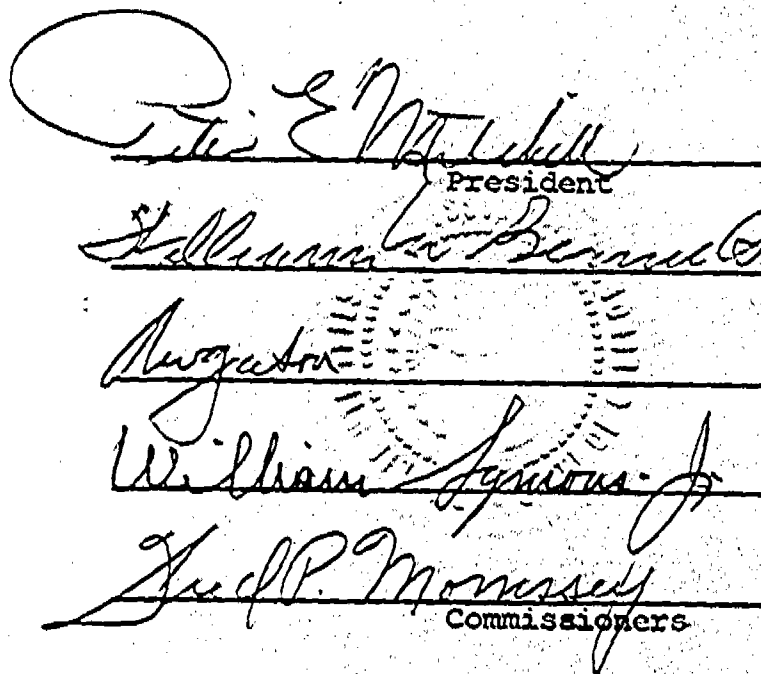 Peter E Mitchell
President
William M Bennett
Augatov
William Symons Jr
Fred P. Morrissey
Commissioners